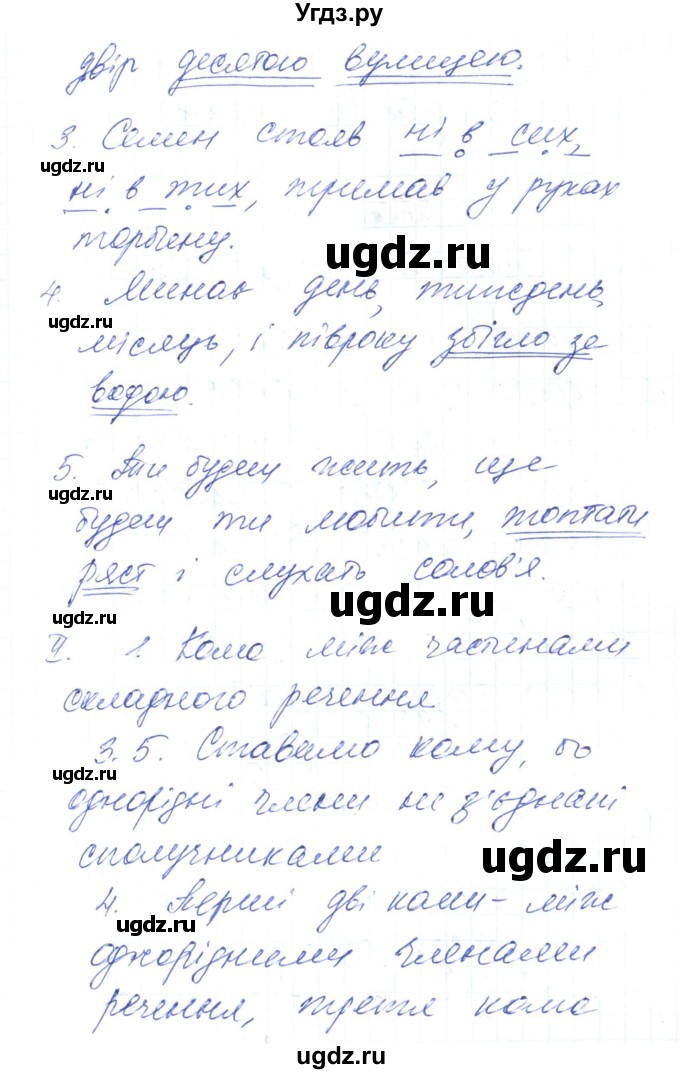 Угдз.ру
двір десятою вулицею.
3. Семен стояв ні в сих,
ugdz.ru
ні в тих, тримав у руках
торбину.
ugdz.ru
4. Минає день, тиждень,
ugdz.ru
місяць, і півроку збігло за
водою.
ugdz.ru
5. Ти будеш жить, ще
ugdz.ru
будеш ти любити, топтати
ряст і слухать солов'я.
ugdz.ru
ugdz.ru
II. 1. Кома між частинами
складного речення
3.5. Ставимо кому, бо
ugdz.ru
однорідні члени не з'єднані
сполучниками
ugdz.ru
4. Перші дві коми – між
ugdz.ru
однорідними членами
речення, третя кома
ugdz.ru